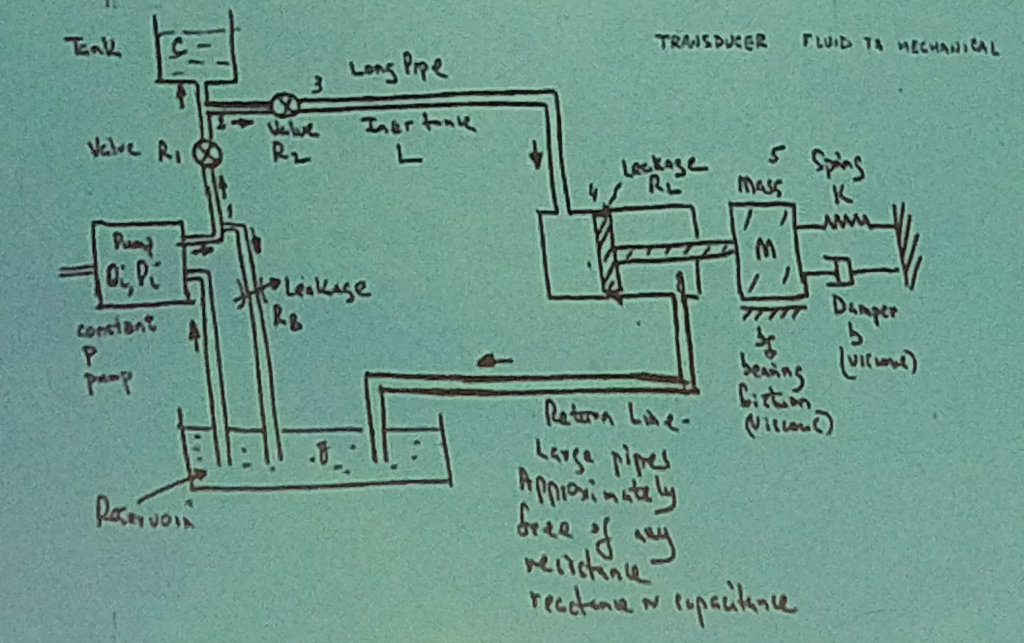 TRANSDUCER FLUID TO MECHANICAL
Tank
C
3
Long Pipe
2
Valve
R2
Inertance
L
Valve R1
1
Pump
Qi, Pi
constant
P
pump
Leakage
RB
4
Leakage
RL
5
Mass
M
Spring
K
Damper
b
(viscous)
bf
bearing
friction
(viscous)
Return Line-
Large pipes
Approximately
free of any
resistance
reactance or capacitance
Reservoir